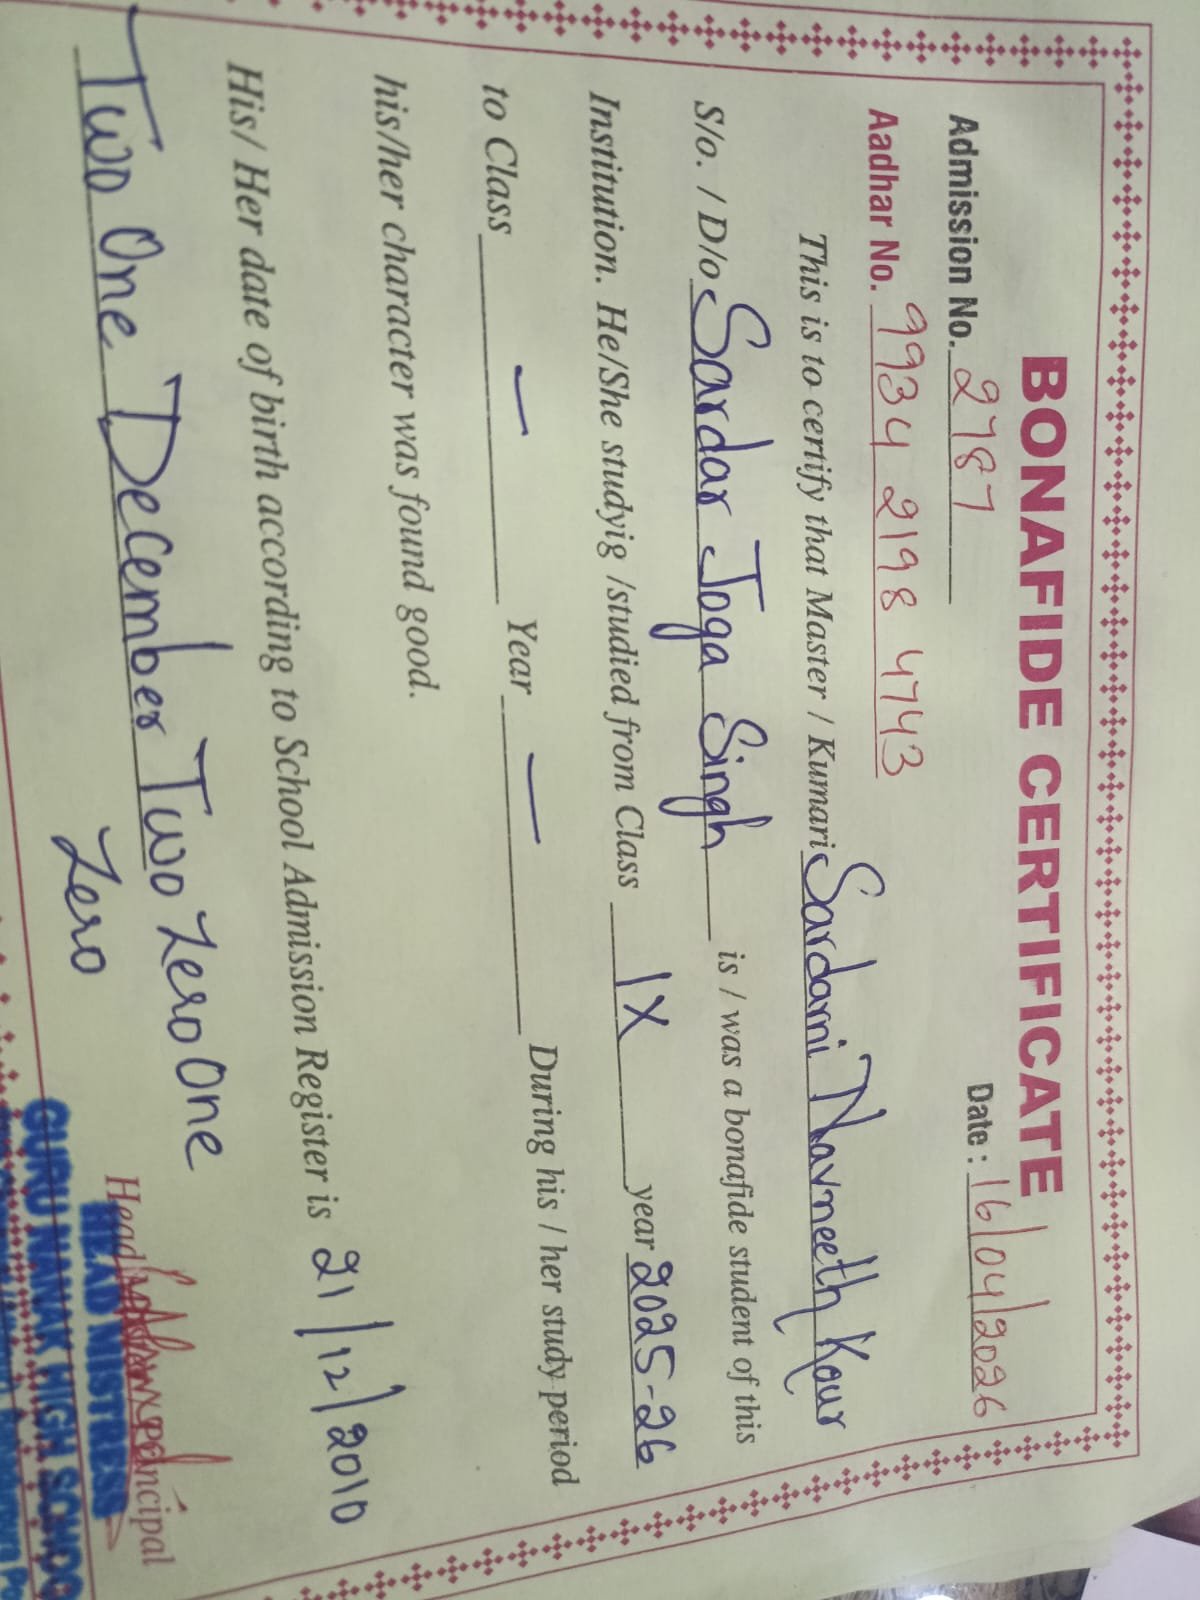 BONAFIDE CERTIFICATE
Admission No. 2787 Date : 16/04/2026
Aadhar No. 9934 2198 4743
This is to certify that Master / Kumari Sardarni Navneeth Kour
S/o. / D/o Sardar Joga Singh is / was a bonafide student of this
Institution. He/She studyig /studied from Class IX year 2025-26
to Class — Year — During his / her study period
his/her character was found good.
His/ Her date of birth according to School Admission Register is 21/12/2010
Two One December Two Zero One
Zero
Head Principal
HEAD MISTRESS
GURU NANAK HIGH SCHOO